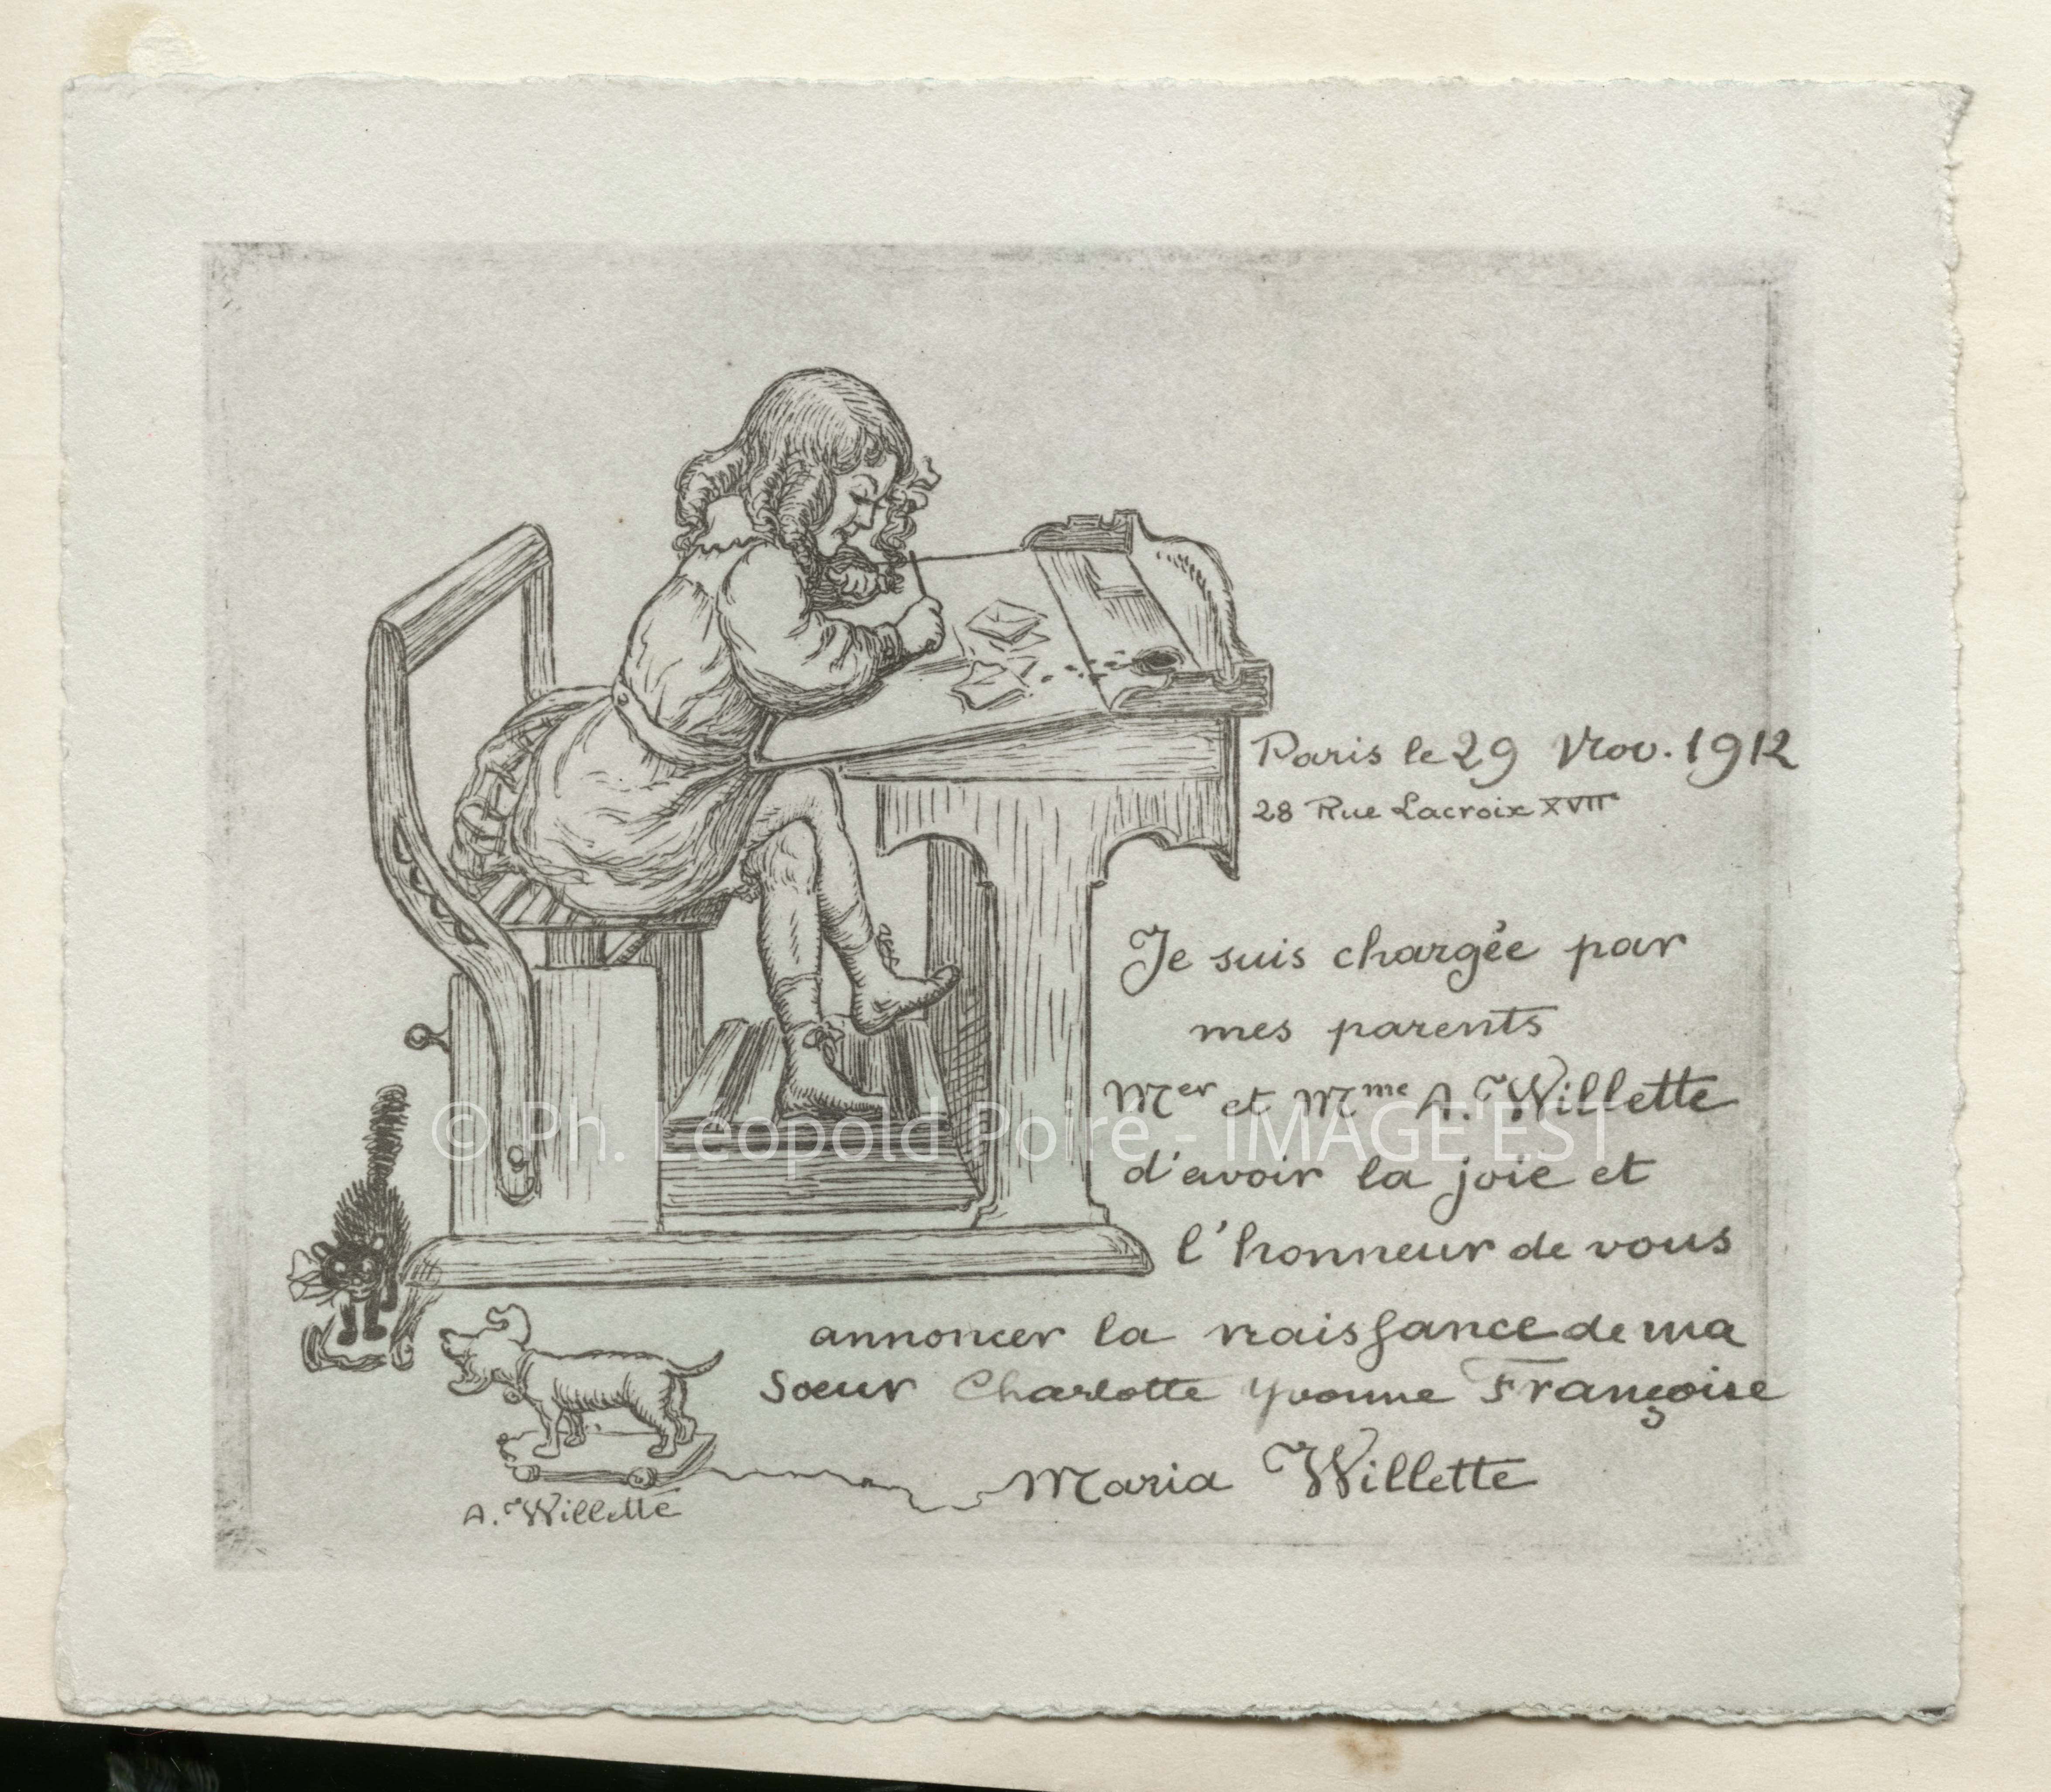 Paris le 29 Nov. 1912
28 Rue Lacroix XVII
Je suis chargée par
mes parents
Mer et Mme A. Willette
© Ph. Léopold Poiré - IMAGE'EST
d'avoir la joie et
l'honneur de vous
annoncer la naissance de ma
Sœur Charlotte Yvonne Françoise
Maria Willette
A. Willette